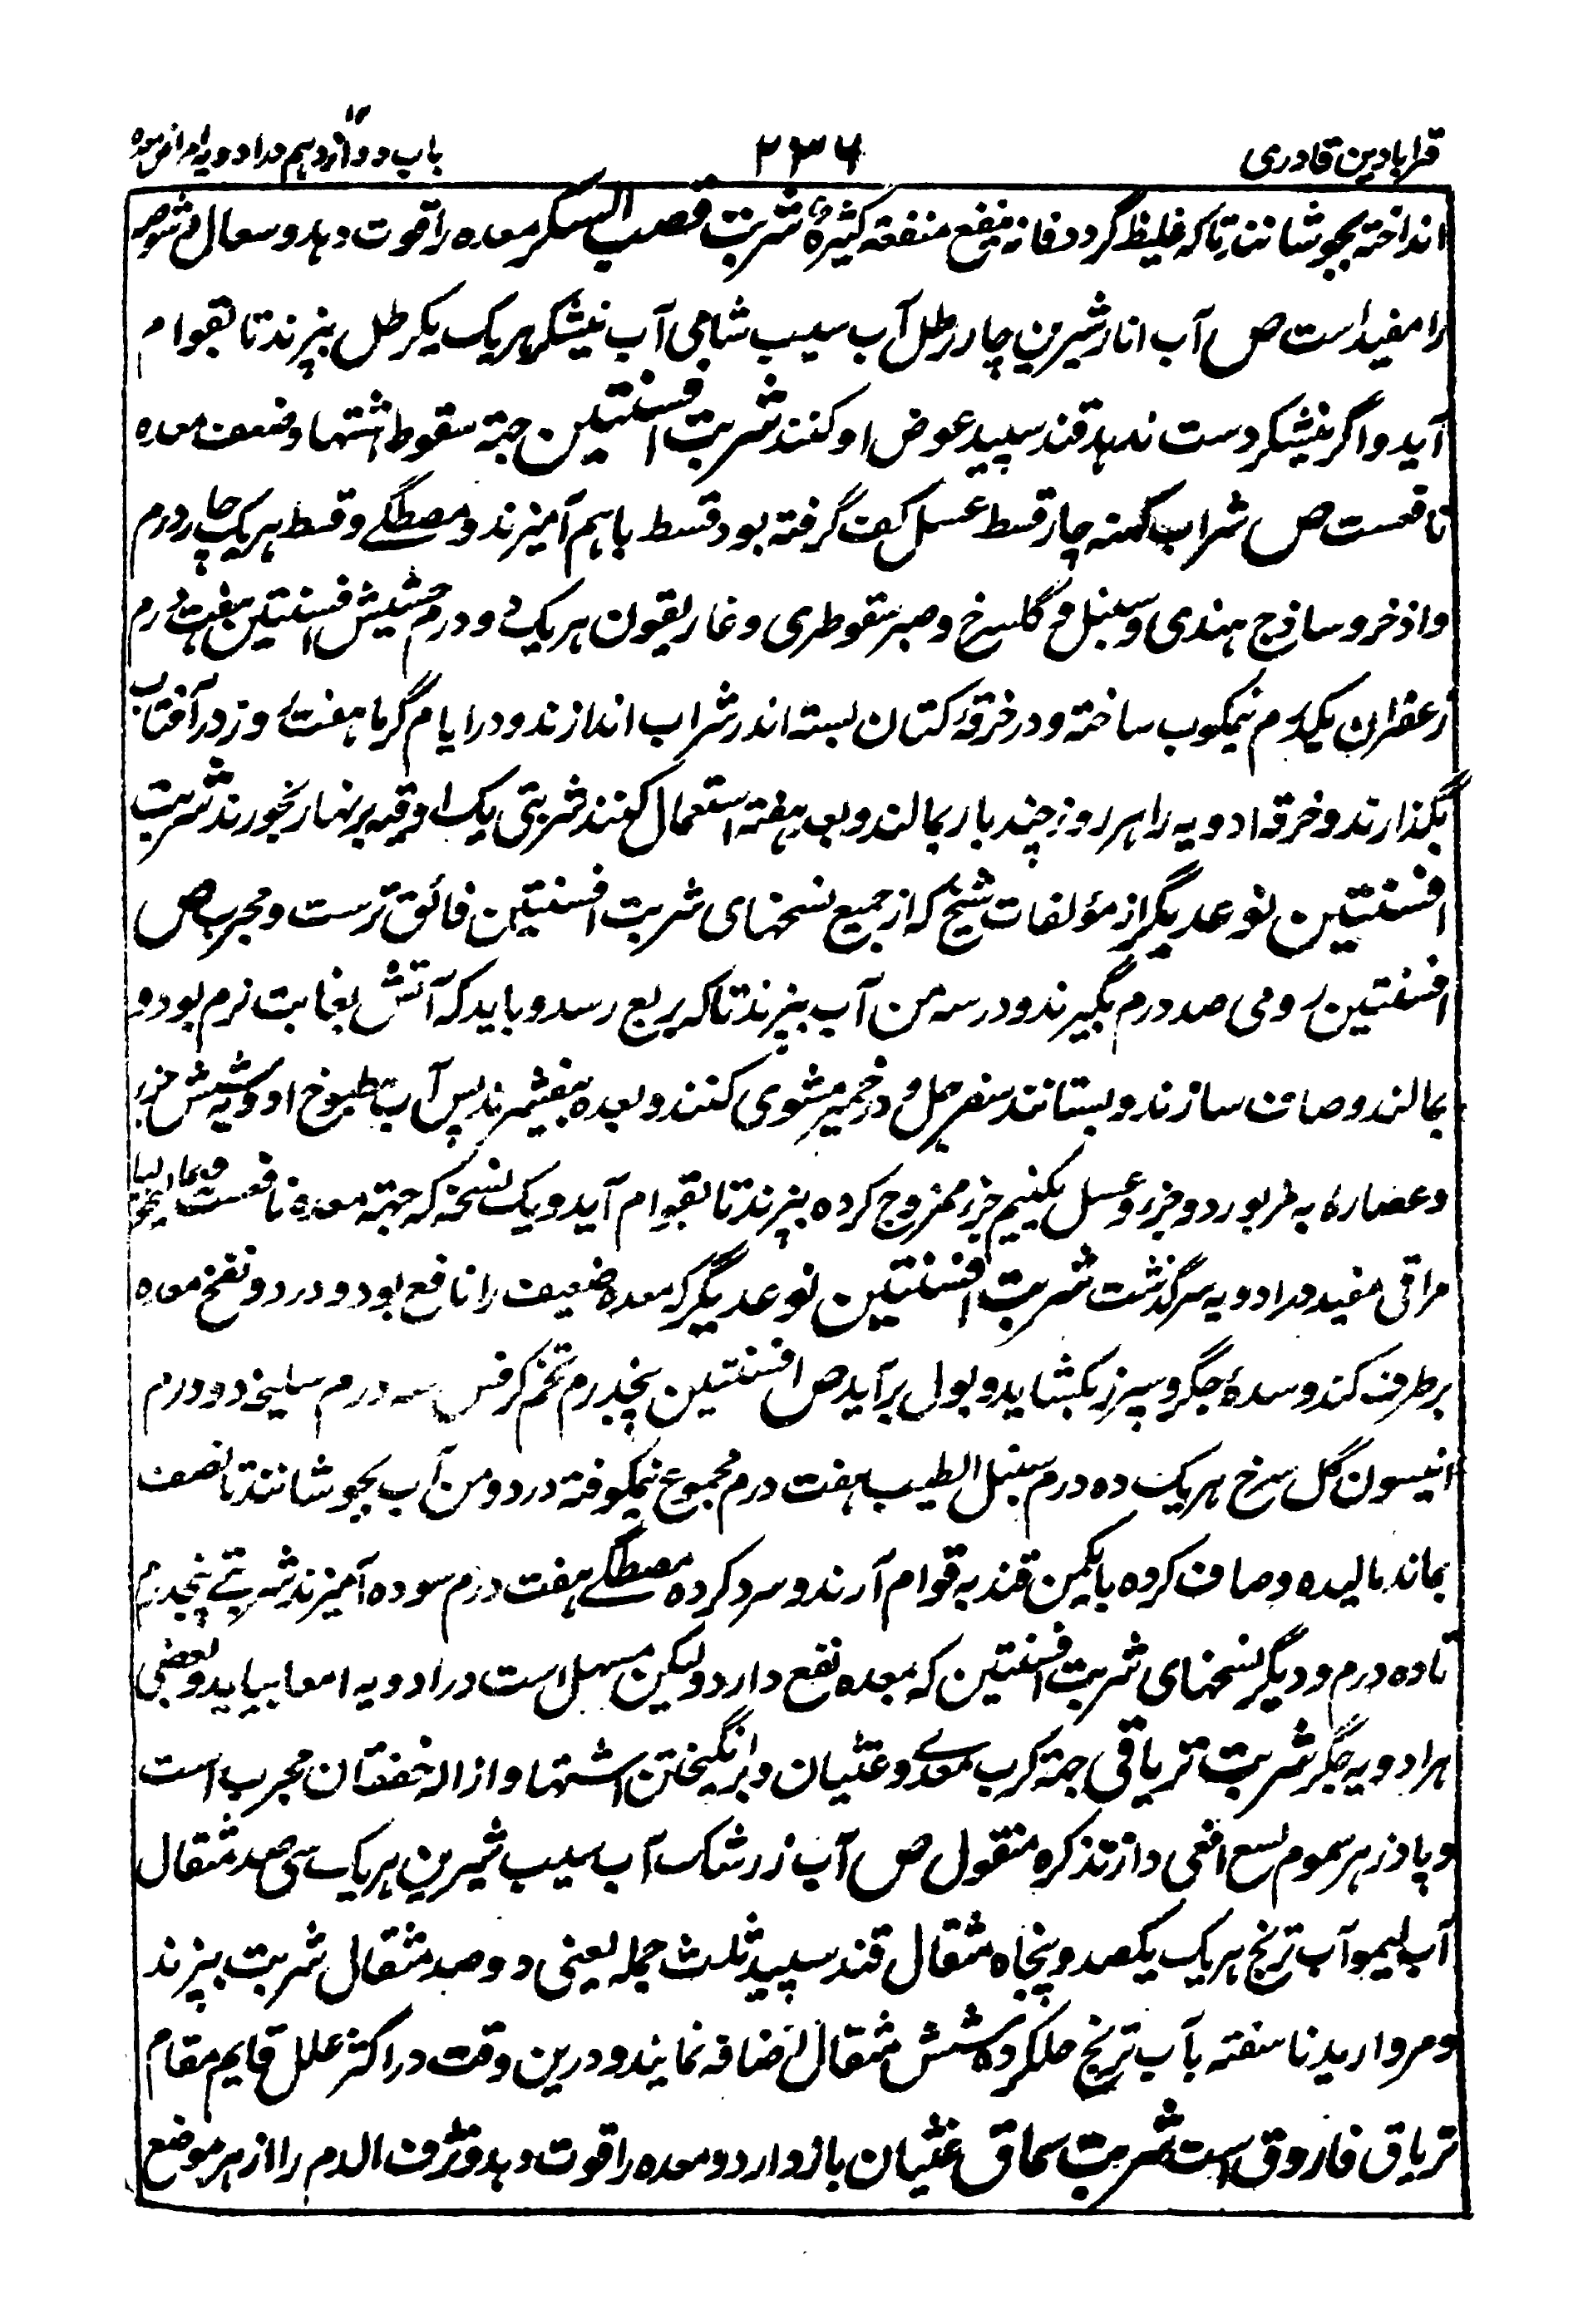 قرابادین قادری ۲۳۶ باب دوازدهم در ادویه امراض معده
انداخته بجوشانند تا که غلیظ گردد فانه ینفع منفعة کثیرة شربت قصب السکر معده را قوت دهد و سعال و شوصه
را مفید است ص آب انار شیرین چار رطل آب سیب شامی آب نیشکر هریک یکرطل بپزند تا بقوام
آید و اگر نیشکر دست ندهد قند سپید عوض او کنند شربت افسنتین جهة سقوط اشتها و ضعف معده
نافعست ص شراب کهنه چار قسط عسل کف گرفته بود قسط باهم آمیزند و مصطگے و قسط هریک چار درم
و اذخر و ساذج هندی و سنبل و گلسرخ و صبر سقوطری و غاریقون هریک دو درم حشیش افسنتین هفت درم
زعفران یکدرم نیمکوب ساخته و در خرقهٔ کتان بسته اندر شراب اندازند و در ایام گرما هفت روز در آفتاب
بگذارند و خرقه ادویه را هر روز چند بار بمالند و بعد هفته استعمال کنند شربتی یک اوقیه بر نهار بخورند شربت
افسنتین نوعدیگر از مؤلفات شیخ که از جمیع نسخهای شربت افسنتین فائق ترست و مجرب ص
افسنتین رومی صد درم بگیرند و در سه من آب بپزند تا که بربع رسد و باید که آتش بغایت نرم بود و
بمالند و صاف سازند و بستانند سفرجل و در خمیر مشوی کنند و بعده بیفشرند پس آب مطبوخ ادویه شش جزء
و عصاره به طربور دو جزء و عسل یکنیم جزء ممزوج کرده بپزند تا بقوام آید و یک نسخه که جهة معده نافعست و بمالیخولیا
مراقی مفید در ادویه سر گذشت شربت افسنتین نوعدیگر که معده ضعیف را نافع بود و درد و نفخ معده
برطرف کند و سدهٔ جگر و سپرز بکشاید و بول براید ص افسنتین پنجدرم تخم کرفس سه درم سلیخه دو درم
انیسون گل سرخ هریک ده درم سنبل الطیب هفت درم مجموع نیمکوفته در دو من آب بجوشانند تا نصف
بماند مالیده و صاف کرده با یکمن قند به قوام آرند و سرد کرده مصطگے هفت درم سوده آمیزند شربتے پنجدرم
تا ده درم و دیگر نسخهای شربت افسنتین که بمعده نفع دارد و لیکن مسهل است در ادویه امعا بیاید و بعضی
در ادویه جگر شربت تریاقی جهة کرب معدے و غثیان و برانگیختن اشتها و ازاله خفقان مجرب است
و پادزهر سموم لسع افعی و از تذکره منقول ص آب زرشک آب سیب شیرین هریک سی صد مثقال
آب لیمو آب ترنج هریک یکصد و پنجاه مثقال قند سپید ثلث جمله یعنی دو صد مثقال شربت بپزند
و مروارید ناسفته بآب ترنج حلکرده شش مثقال اضافه نمایند و درین وقت در اکثر علل قایم مقام
تریاق فاروق است شربت سماق غثیان باز دارد و معده را قوت دهد و نزف الدم را از هر موضع